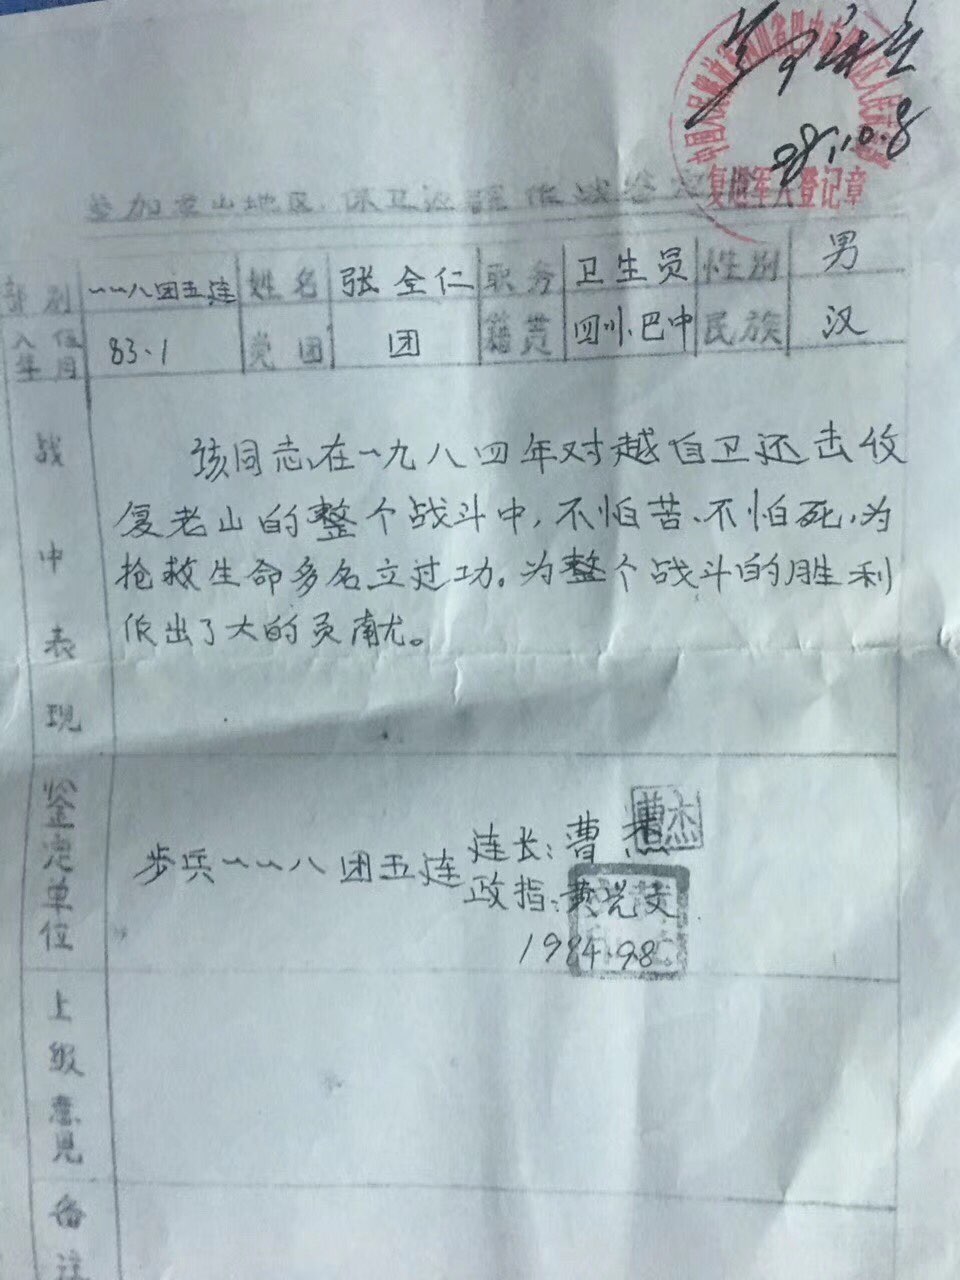 复退军人登记章
参加老山地区保卫边疆作战鉴定
部别 一一八团五连 姓名 张全仁 职务 卫生员 性别 男
入伍年月 83.1 党团 团 籍贯 四川巴中 民族 汉
战中表现
该同志在一九八四年对越自卫还击收
复老山的整个战斗中,不怕苦、不怕死,为
抢救生命多名立过功。为整个战斗的胜利
作出了大的贡献。
鉴定单位
步兵一一八团五连 连长:曹杰
曹杰
政指:黄光文
1984.9.8
上级意见
备注